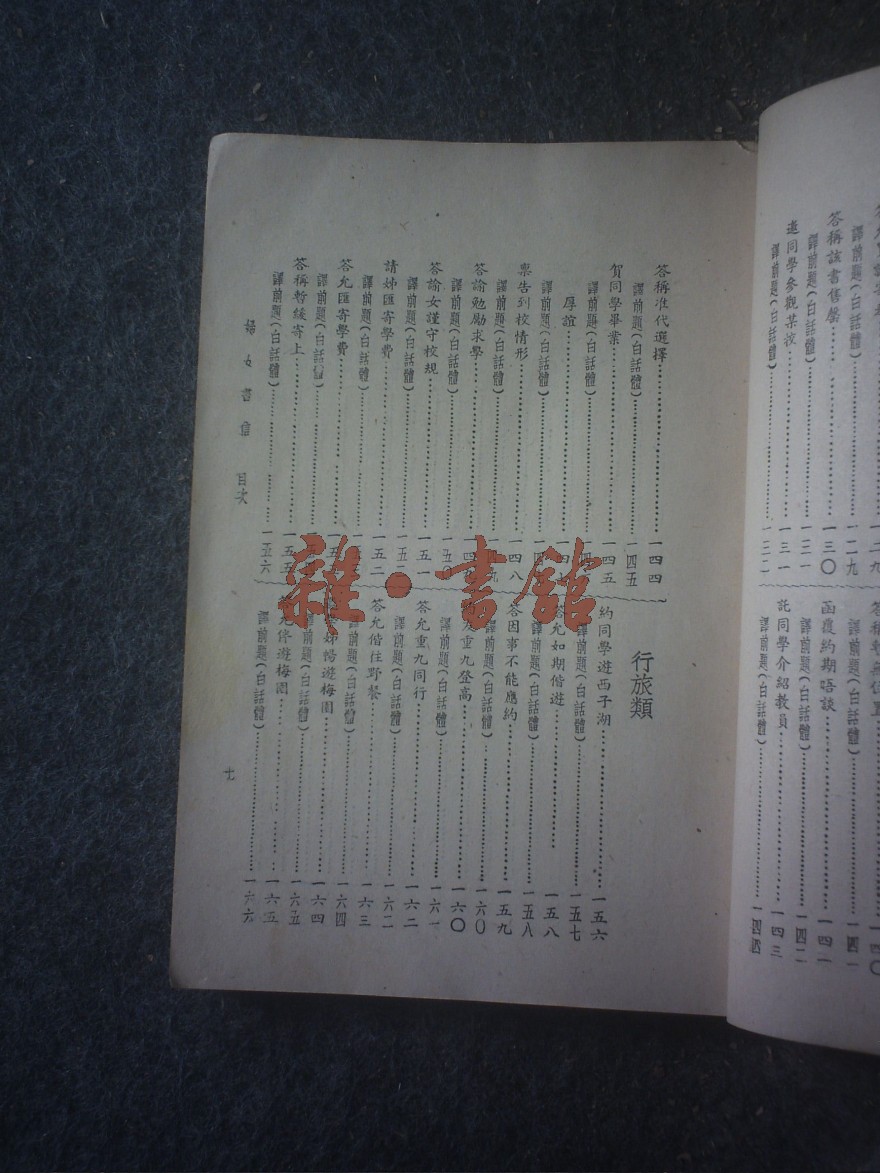 答稱該書售罄……一三〇
譯前題(白話體)……一三一
邀同學參觀某校……一三一
譯前題(白話體)……一三二
函覆約期晤談……一四二
譯前題(白話體)……一四二
託同學介紹教員……一四三
譯前題(白話體)……一四四
答稱准代選擇……一四四
譯前題(白話體)……一四五
賀同學畢業……一四五
譯前題(白話體)
厚誼
譯前題(白話體)
稟告到校情形……一四八
譯前題(白話體)
答諭勉勵求學
譯前題(白話體)
答諭女謹守校規……一五一
譯前題(白話體)……一五二
請姊匯寄學費……一五二
譯前題(白話體)
答允匯寄學費
譯前題(白話體)
答稱暫緩寄上……一五五
譯前題(白話體)……一五六
行旅類
約同學遊西子湖……一五六
譯前題(白話體)……一五七
答允如期偕遊……一五八
譯前題(白話體)……一五八
答因事不能應約……一五九
譯前題(白話體)……一六〇
友重九登高……一六〇
譯前題(白話體)……一六一
答允重九同行……一六二
譯前題(白話體)……一六二
答允偕往野餐……一六三
譯前題(白話體)……一六四
姊暢遊梅園……一六四
譯前題(白話體)……一六五
允偕遊梅園……一六五
譯前題(白話體)……一六六
婦女書信 目次
七
雜·書館